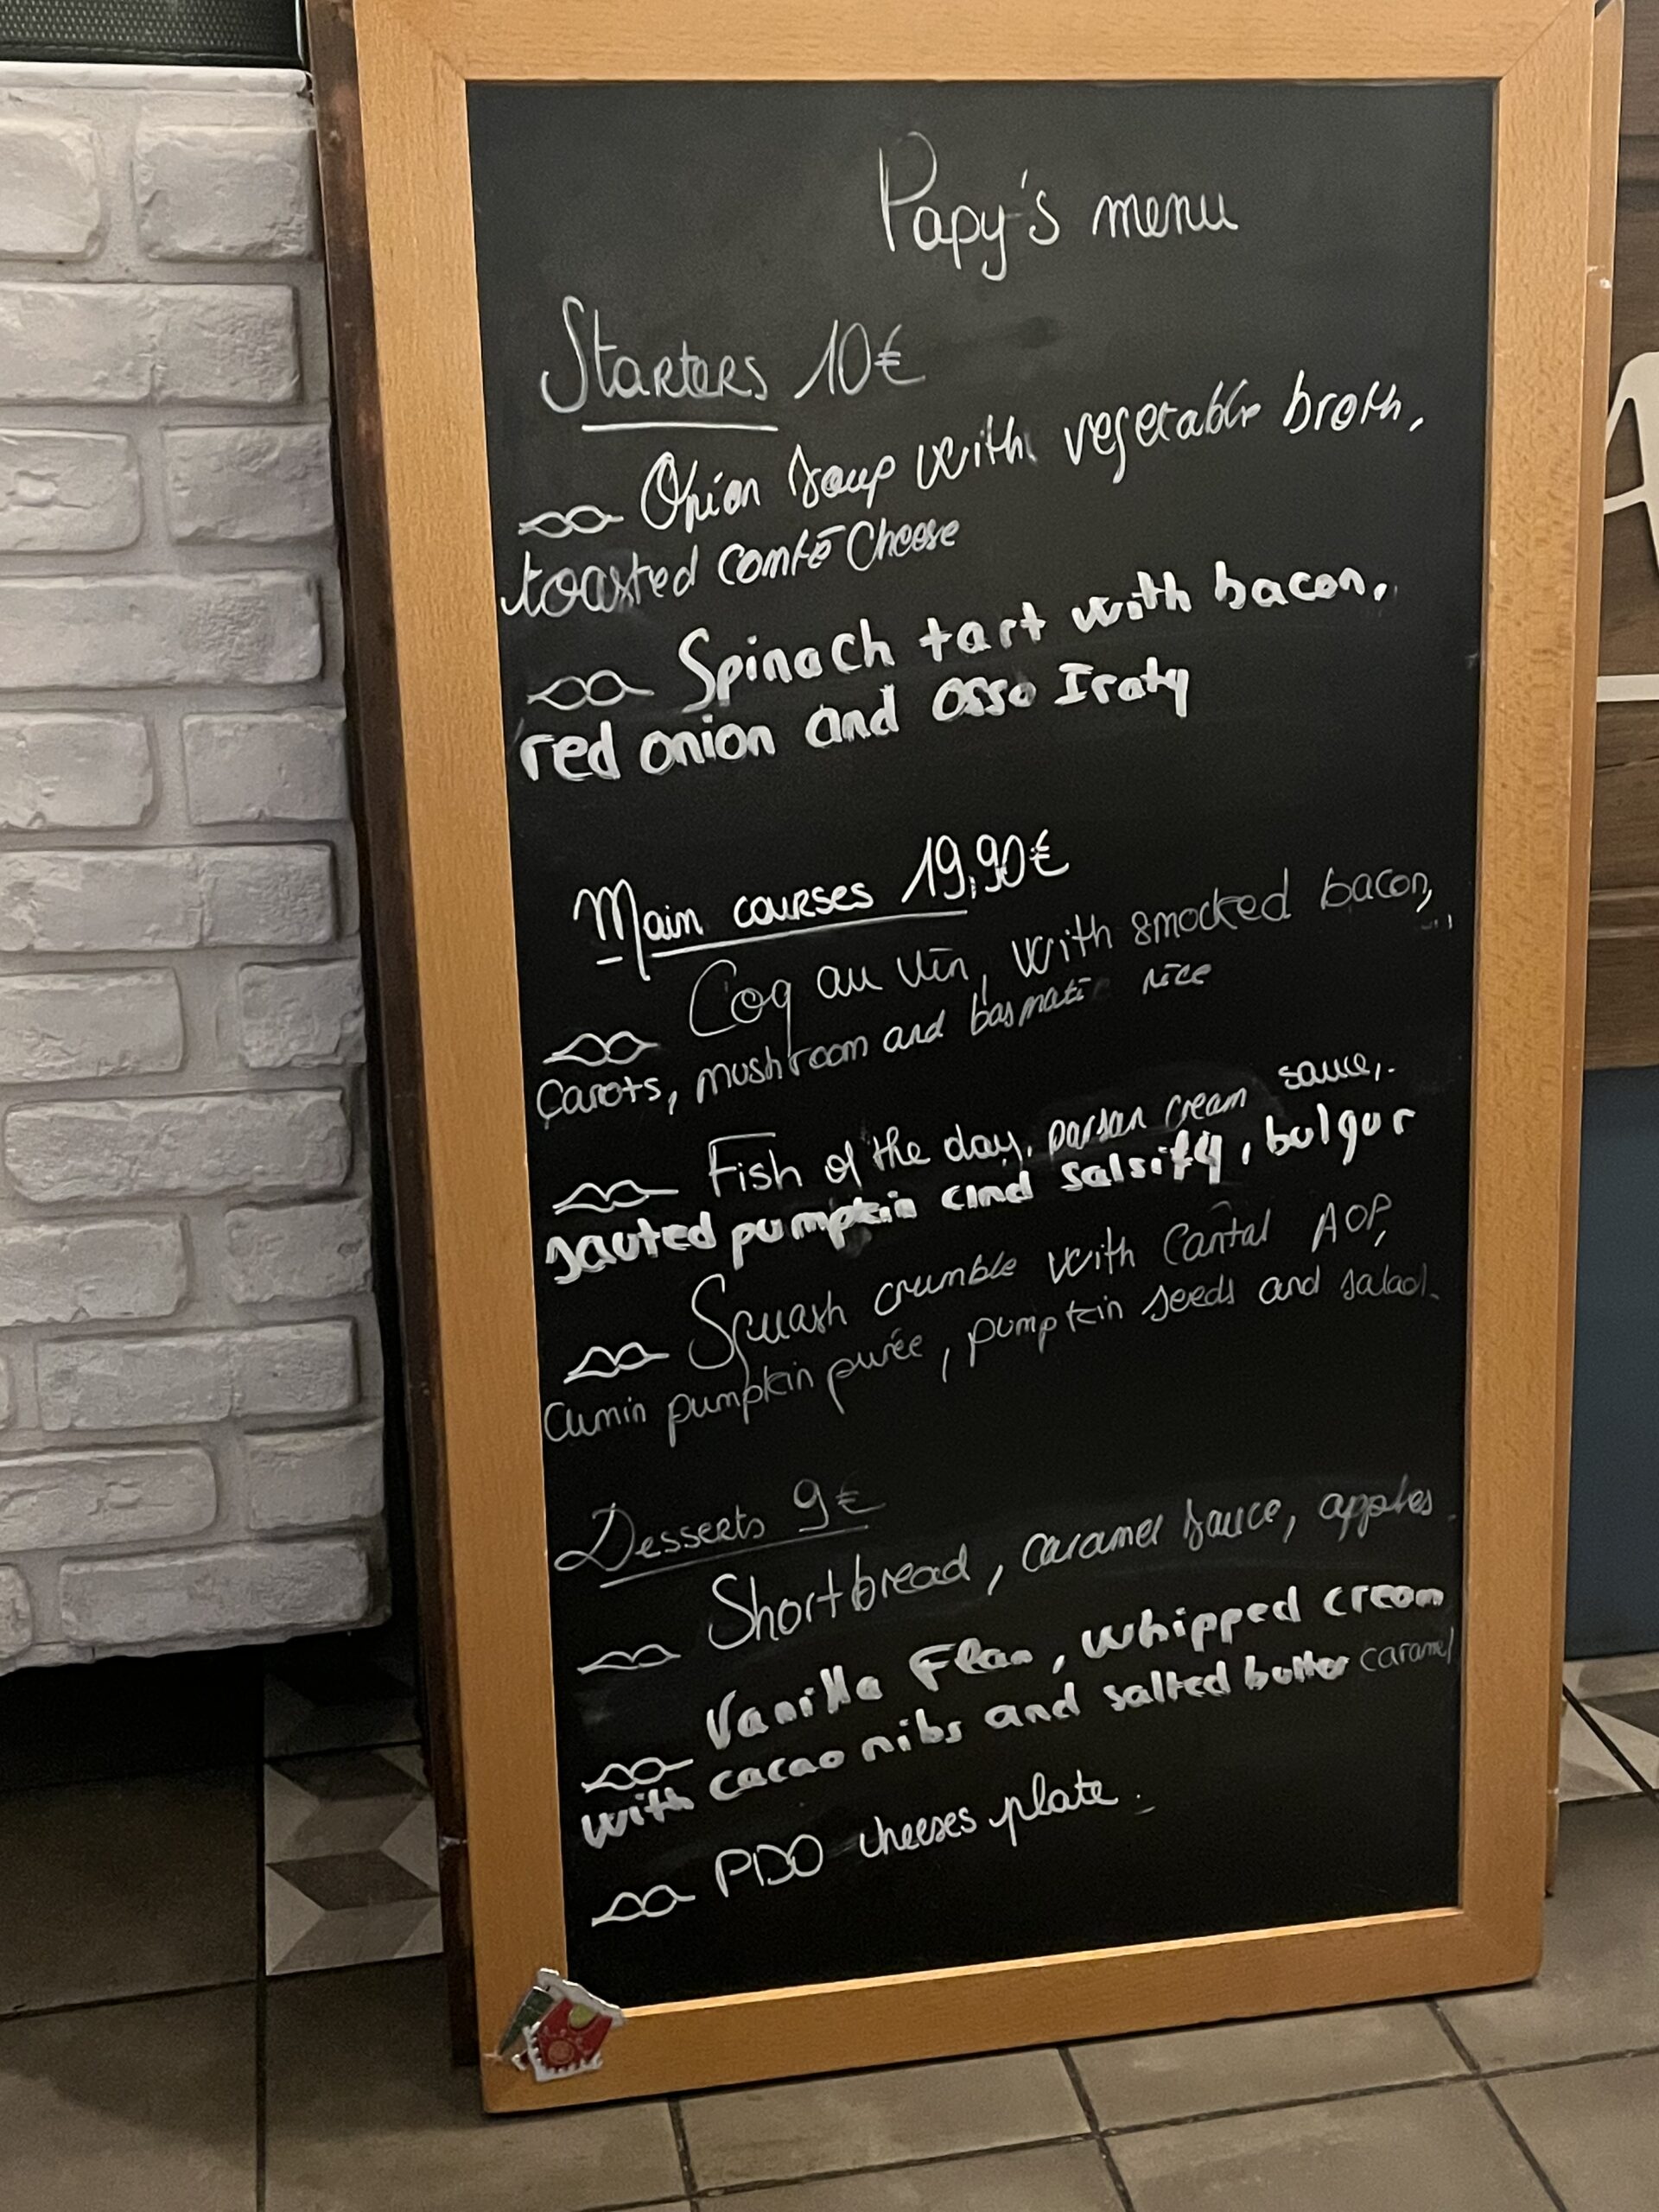 Papy's menu
Starters 10€
Onion soup with vegetable broth,
toasted comté cheese
Spinach tart with bacon,
red onion and osso Iraty
Main courses 19,90€
Coq au vin, with smocked bacon,
carots, mushroom and basmati rice
Fish of the day, cream sauce,
sauted pumpkin and salsify, bulgur
Squash crumble with Cantal AOP,
cumin pumpkin purée, pumpkin seeds and salad.
Desserts 9€
Shortbread, caramel sauce, apples.
Vanilla Flan, whipped cream
with cacao nibs and salted butter caramel
PDO cheeses plate.